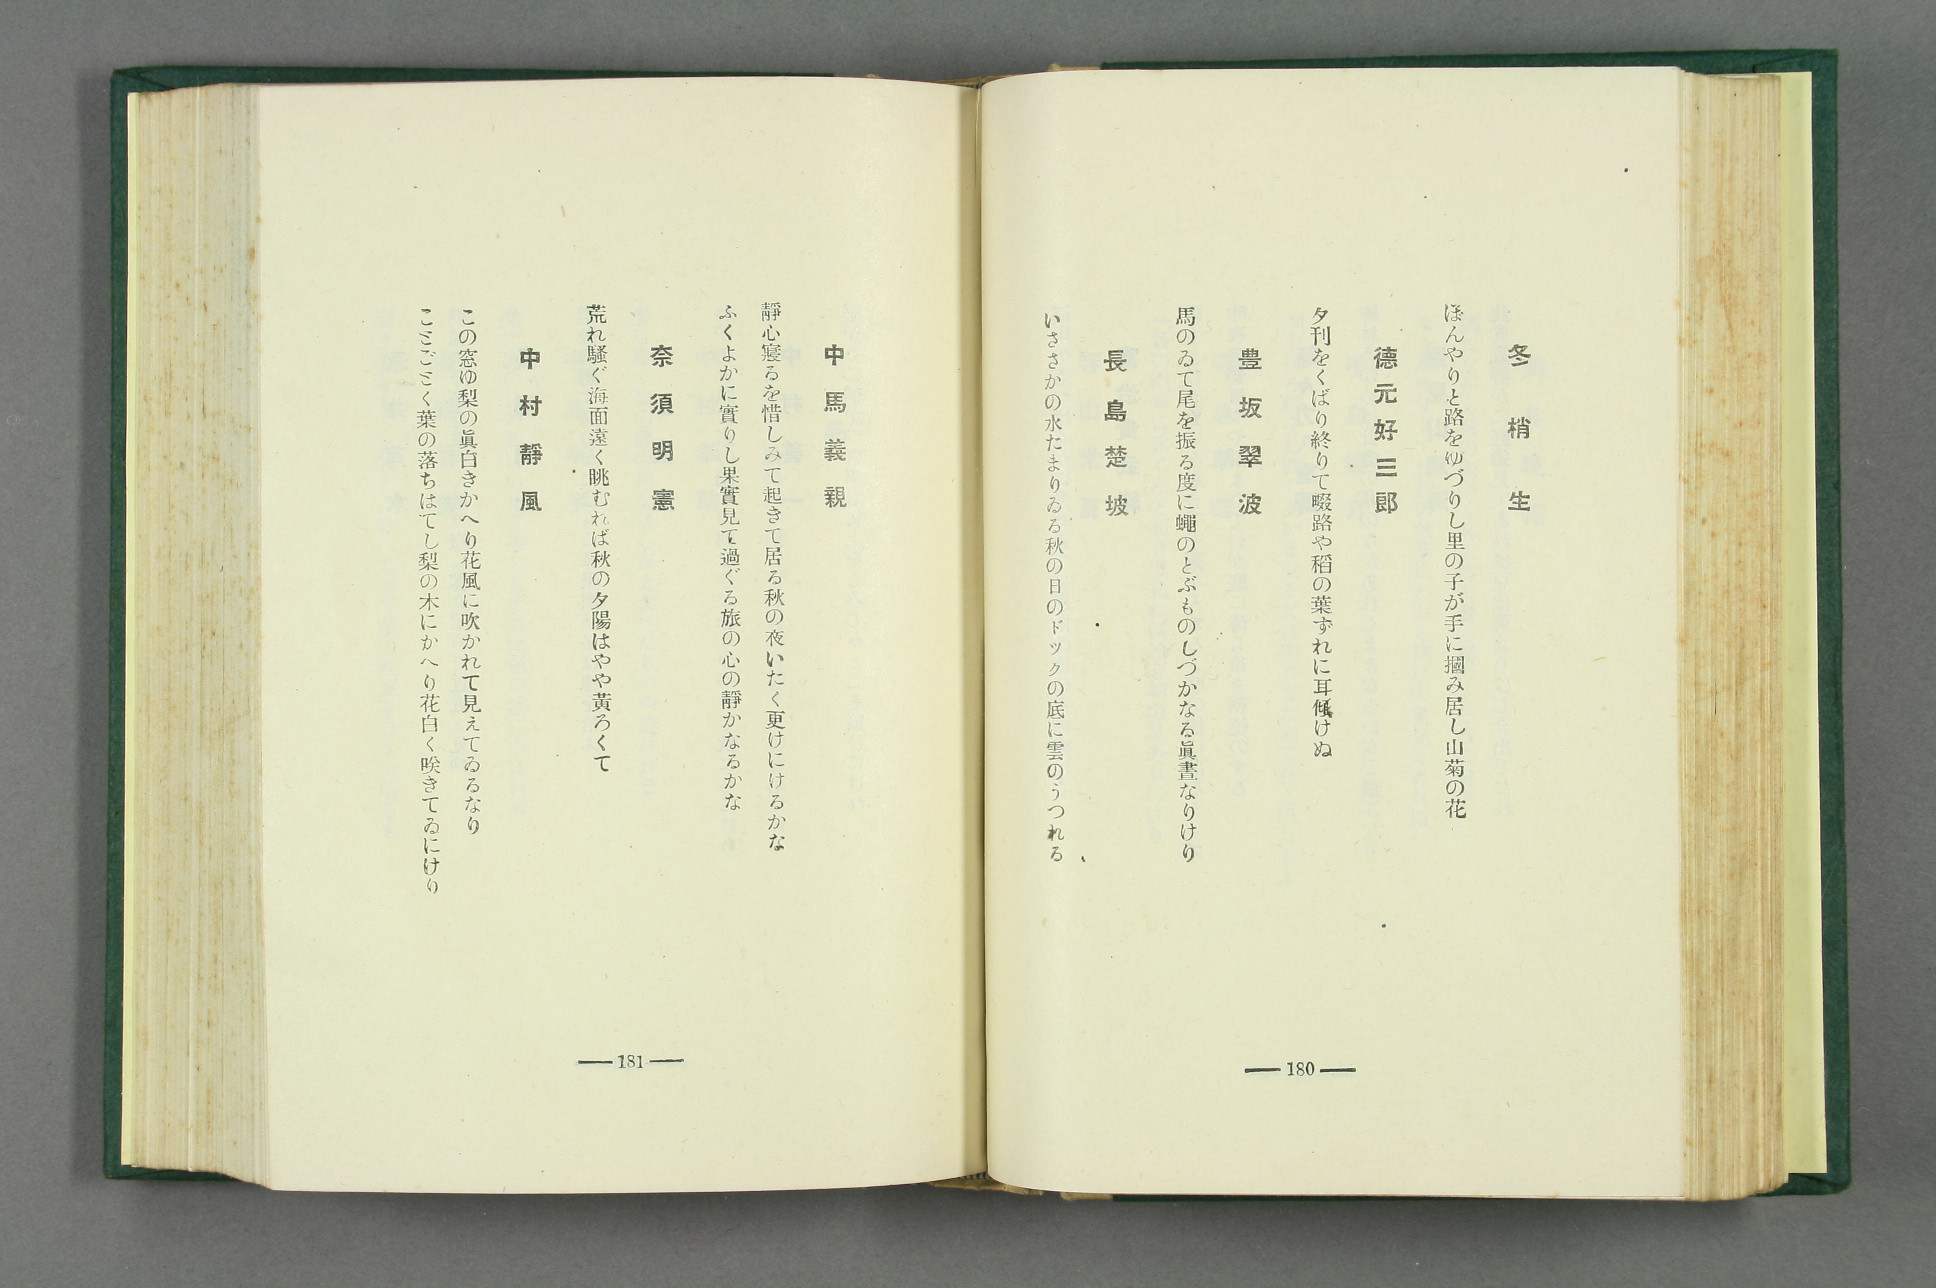 冬梢生
ほんやりと路をゆづりし里の子が手に摑み居し山菊の花
德元好三郎
夕刊をくばり終りて畷路や稻の葉ずれに耳傾けぬ
豊坂翠波
馬のゐて尾を振る度に蠅のとぶものしづかなる眞晝なりけり
長島楚坡
いささかの水たまりゐる秋の日のドックの底に雲のうつれる
180
中馬義親
靜心寢るを惜しみて起きて居る秋の夜いたく更けにけるかな
ふくよかに實りし果實見て過ぐる旅の心の靜かなるかな
奈須明憲
荒れ騷ぐ海面遠く眺むれば秋の夕陽はやや黃ろくて
中村靜風
この窓ゆ梨の眞白きかへり花風に吹かれて見えてゐるなり
ことごとく葉の落ちはてし梨の木にかへり花白く咲きてゐにけり
181